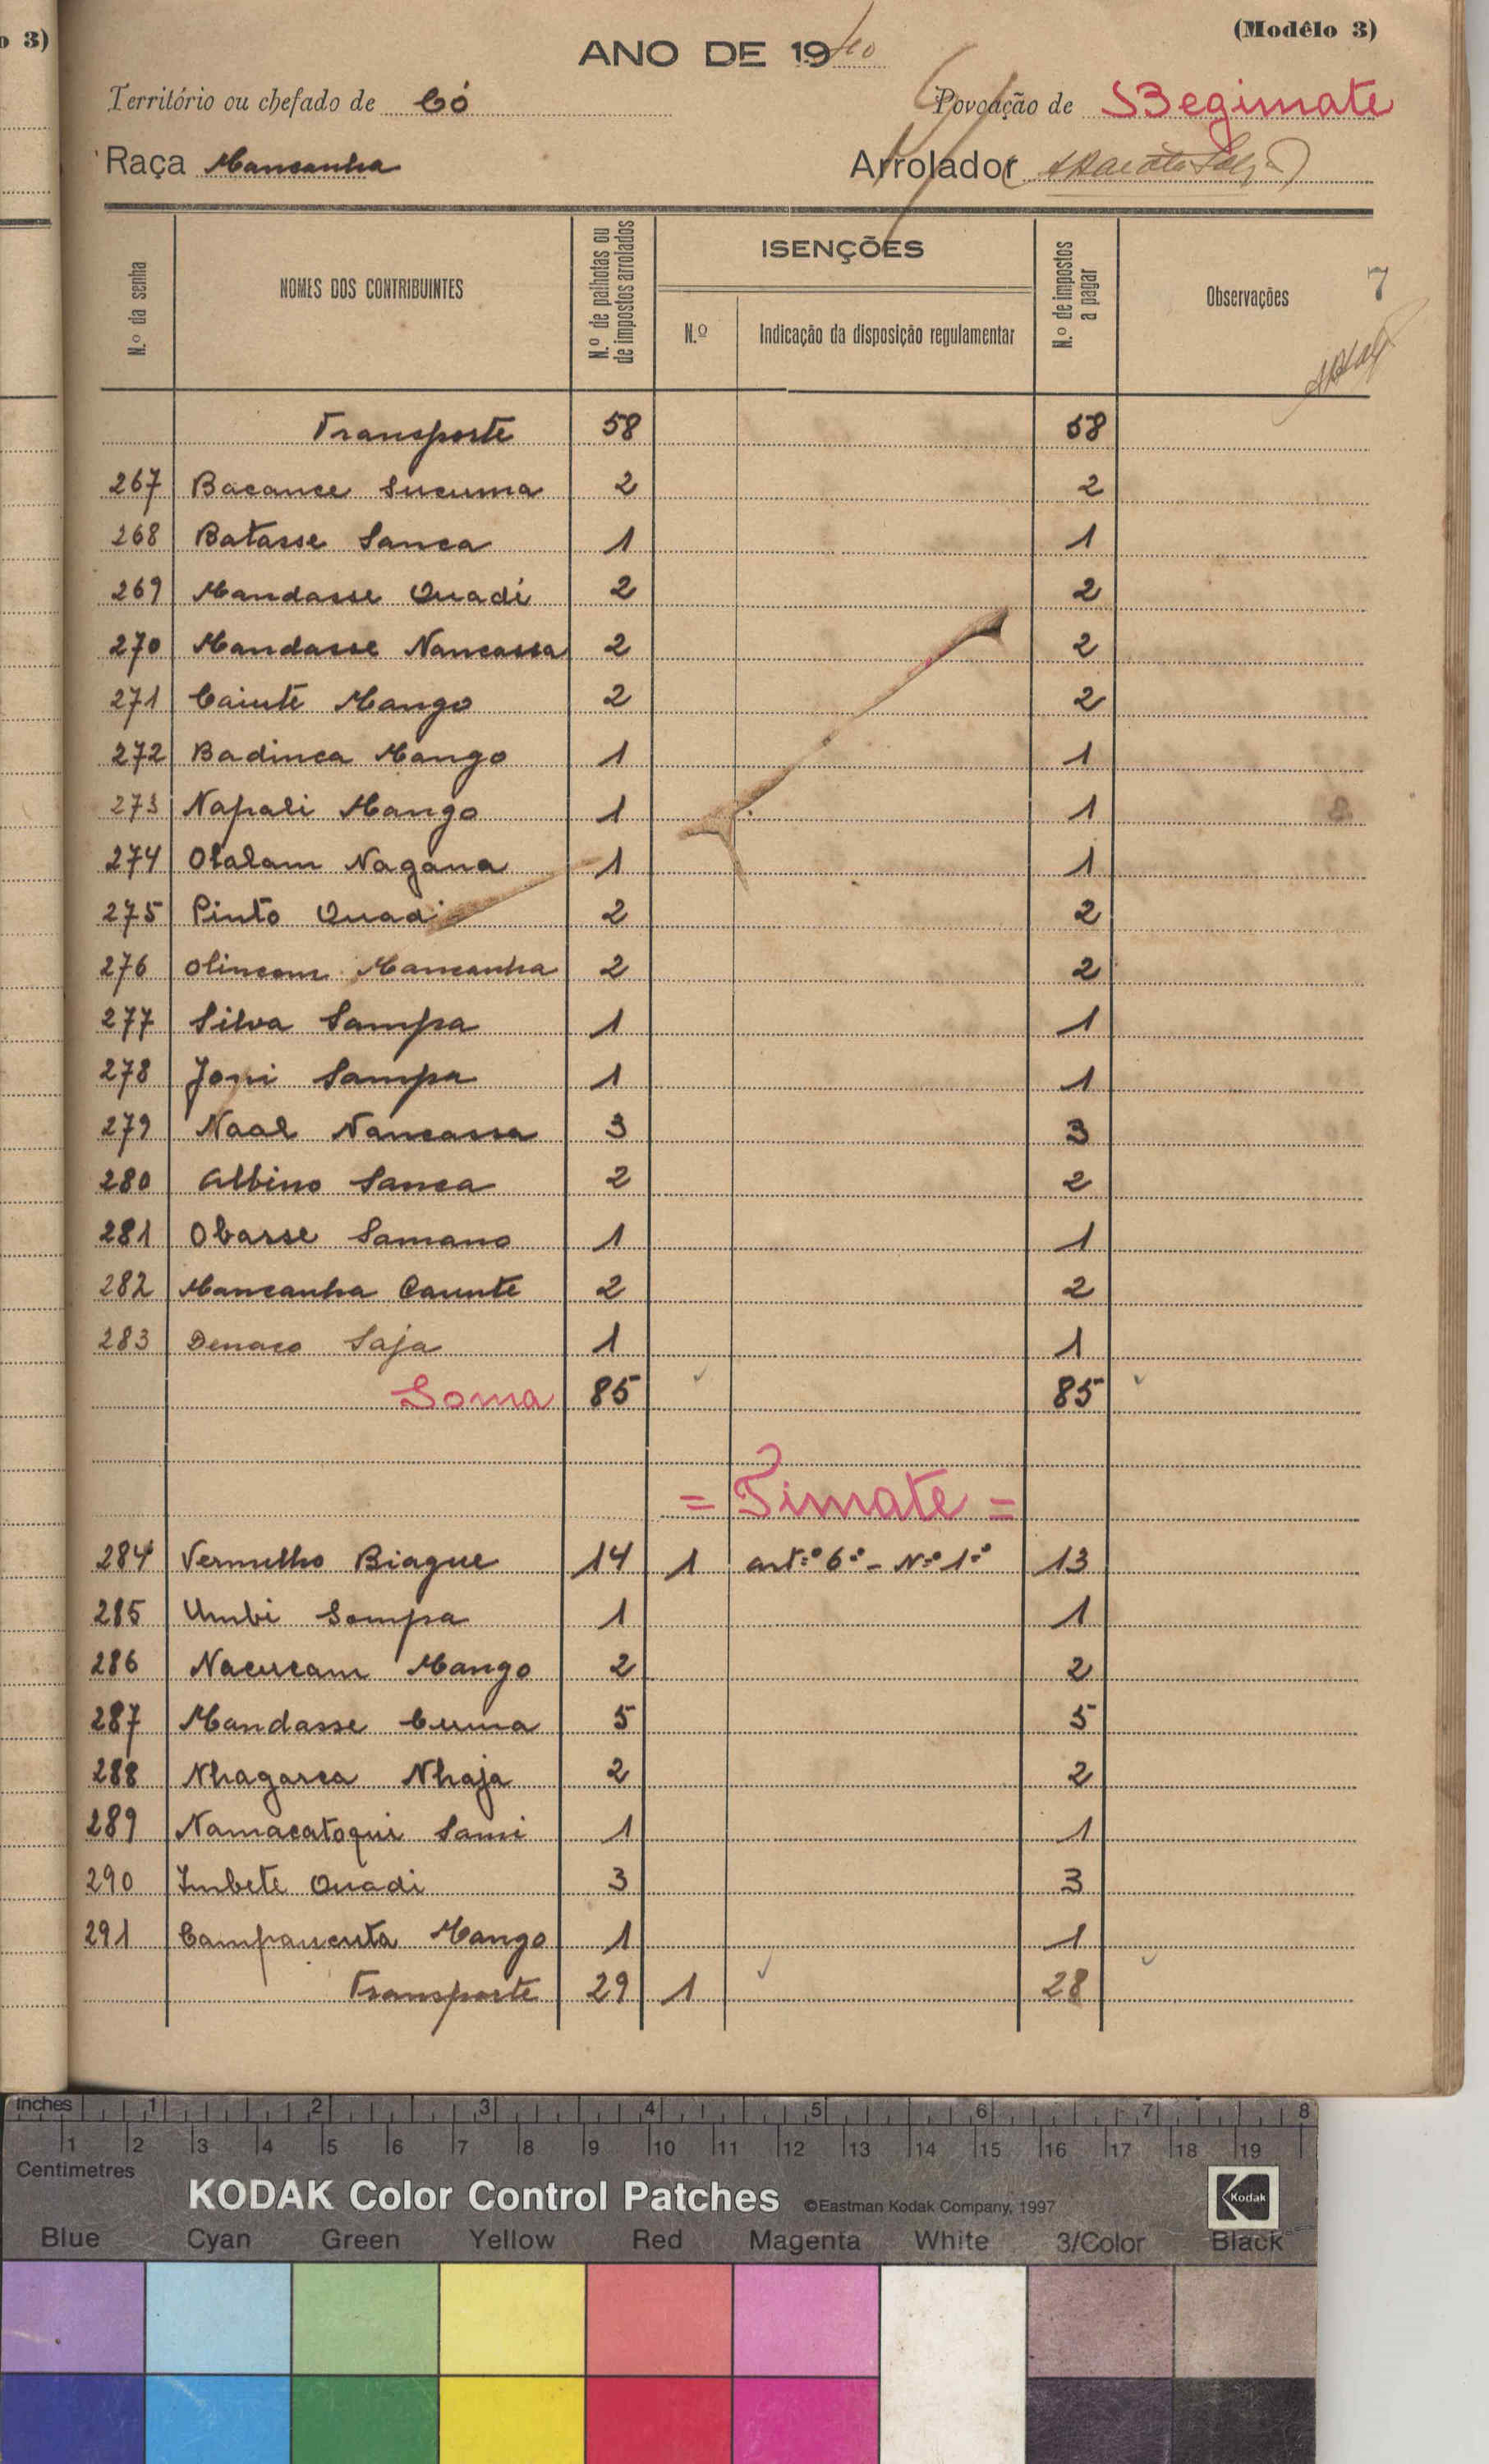 o 3)
(Modêlo 3)
ANO DE 1940
Território ou chefado de Có
Povoação de Begimate
Raça Mancanha
Arrolador
N.º da senha
NOMES DOS CONTRIBUINTES
N.º de palhotas ou de impostos arrolados
ISENÇÕES
N.º
Indicação da disposição regulamentar
N.º de impostos a pagar
Observações
7
Transporte 58 58
267 Bacance Sucuma 2 2
268 Batasse Sanca 1 1
269 Mandasse Quadi 2 2
270 Mandasse Nancassa 2 2
271 Cainte Mango 2 2
272 Badinca Mango 1 1
273 Napali Mango 1 1
274 Olalam Nagana 1 1
275 Pinto Quadi 2 2
276 Olincom Mancanha 2 2
277 Silva Sampa 1 1
278 Joni Sampa 1 1
279 Naal Nancassa 3 3
280 Albino Sanca 2 2
281 Obasse Samano 1 1
282 Mancanha Caunte 2 2
283 Denaco Saja 1 1
Soma 85 85
= Timate =
284 Vermelho Biague 14 1 art.º 6.º - N.º 1.º 13
285 Umbi Sampa 1 1
286 Nacucam Mango 2 2
287 Mandasse Cuma 5 5
288 Nhagarca Nhaja 2 2
289 Namacatoqui Sami 1 1
290 Imbete Quadi 3 3
291 Campanenta Mango 1 1
Transporte 29 1 28
Inches 1 2 3 4 5 6 7 8
1 2 3 4 5 6 7 8 9 10 11 12 13 14 15 16 17 18 19
Centimetres
KODAK Color Control Patches ©Eastman Kodak Company, 1997
Kodak
Blue Cyan Green Yellow Red Magenta White 3/Color Black